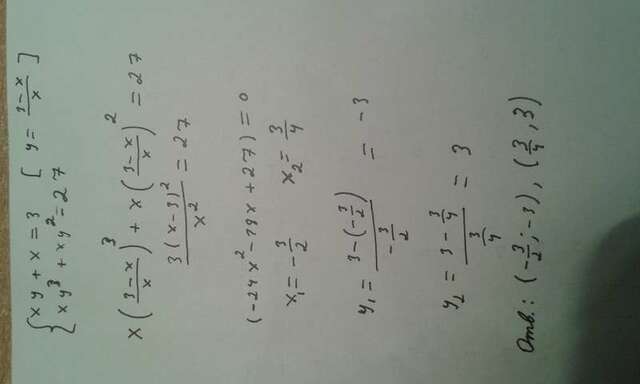 { xy + x = 3 [ y = \frac{3-x}{x} ]
{ xy³ + xy² = 27
x(\frac{3-x}{x})³ + x(\frac{3-x}{x})² = 27
\frac{3(x-3)²}{x²} = 27
(-24x² - 18x + 27) = 0
x₁ = -\frac{3}{2} x₂ = \frac{3}{4}
y₁ = \frac{3-(-\frac{3}{2})}{-\frac{3}{2}} = -3
y₂ = \frac{3-\frac{3}{4}}{\frac{3}{4}} = 3
Отв.: (-\frac{3}{2}; -3), (\frac{3}{4}, 3)